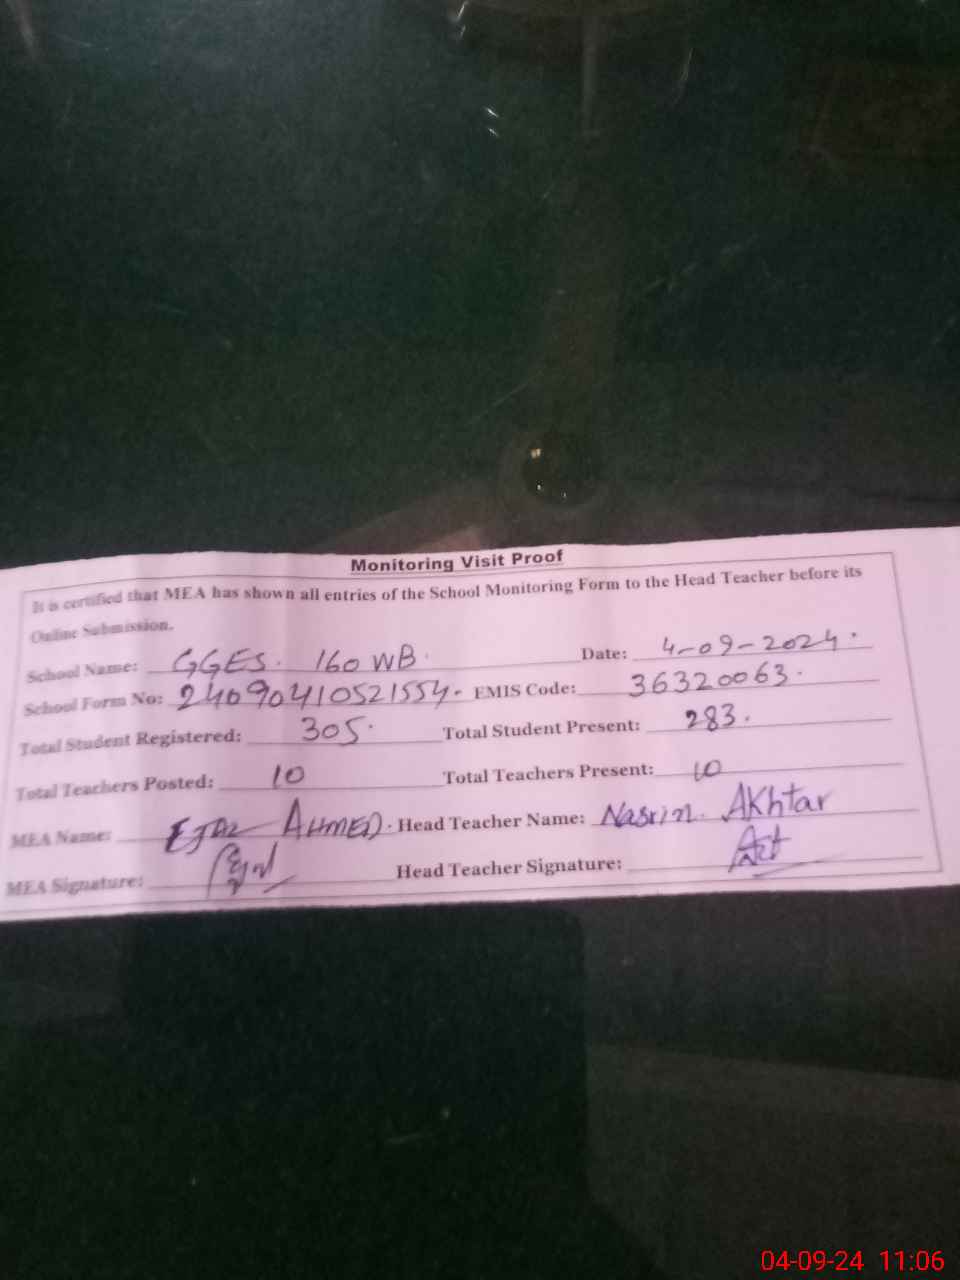 Monitoring Visit Proof
It is certified that MEA has shown all entries of the School Monitoring Form to the Head Teacher before its
Online Submission.
School Name: GGES. 160 WB. Date: 4-09-2024.
School Form No: 24090410521554. EMIS Code: 36320063.
Total Student Registered: 305. Total Student Present: 283.
Total Teachers Posted: 10 Total Teachers Present: 10
MEA Name: EJAZ AHMED. Head Teacher Name: Nasrin. AKhtar
MEA Signature: Head Teacher Signature:
04-09-24 11:06